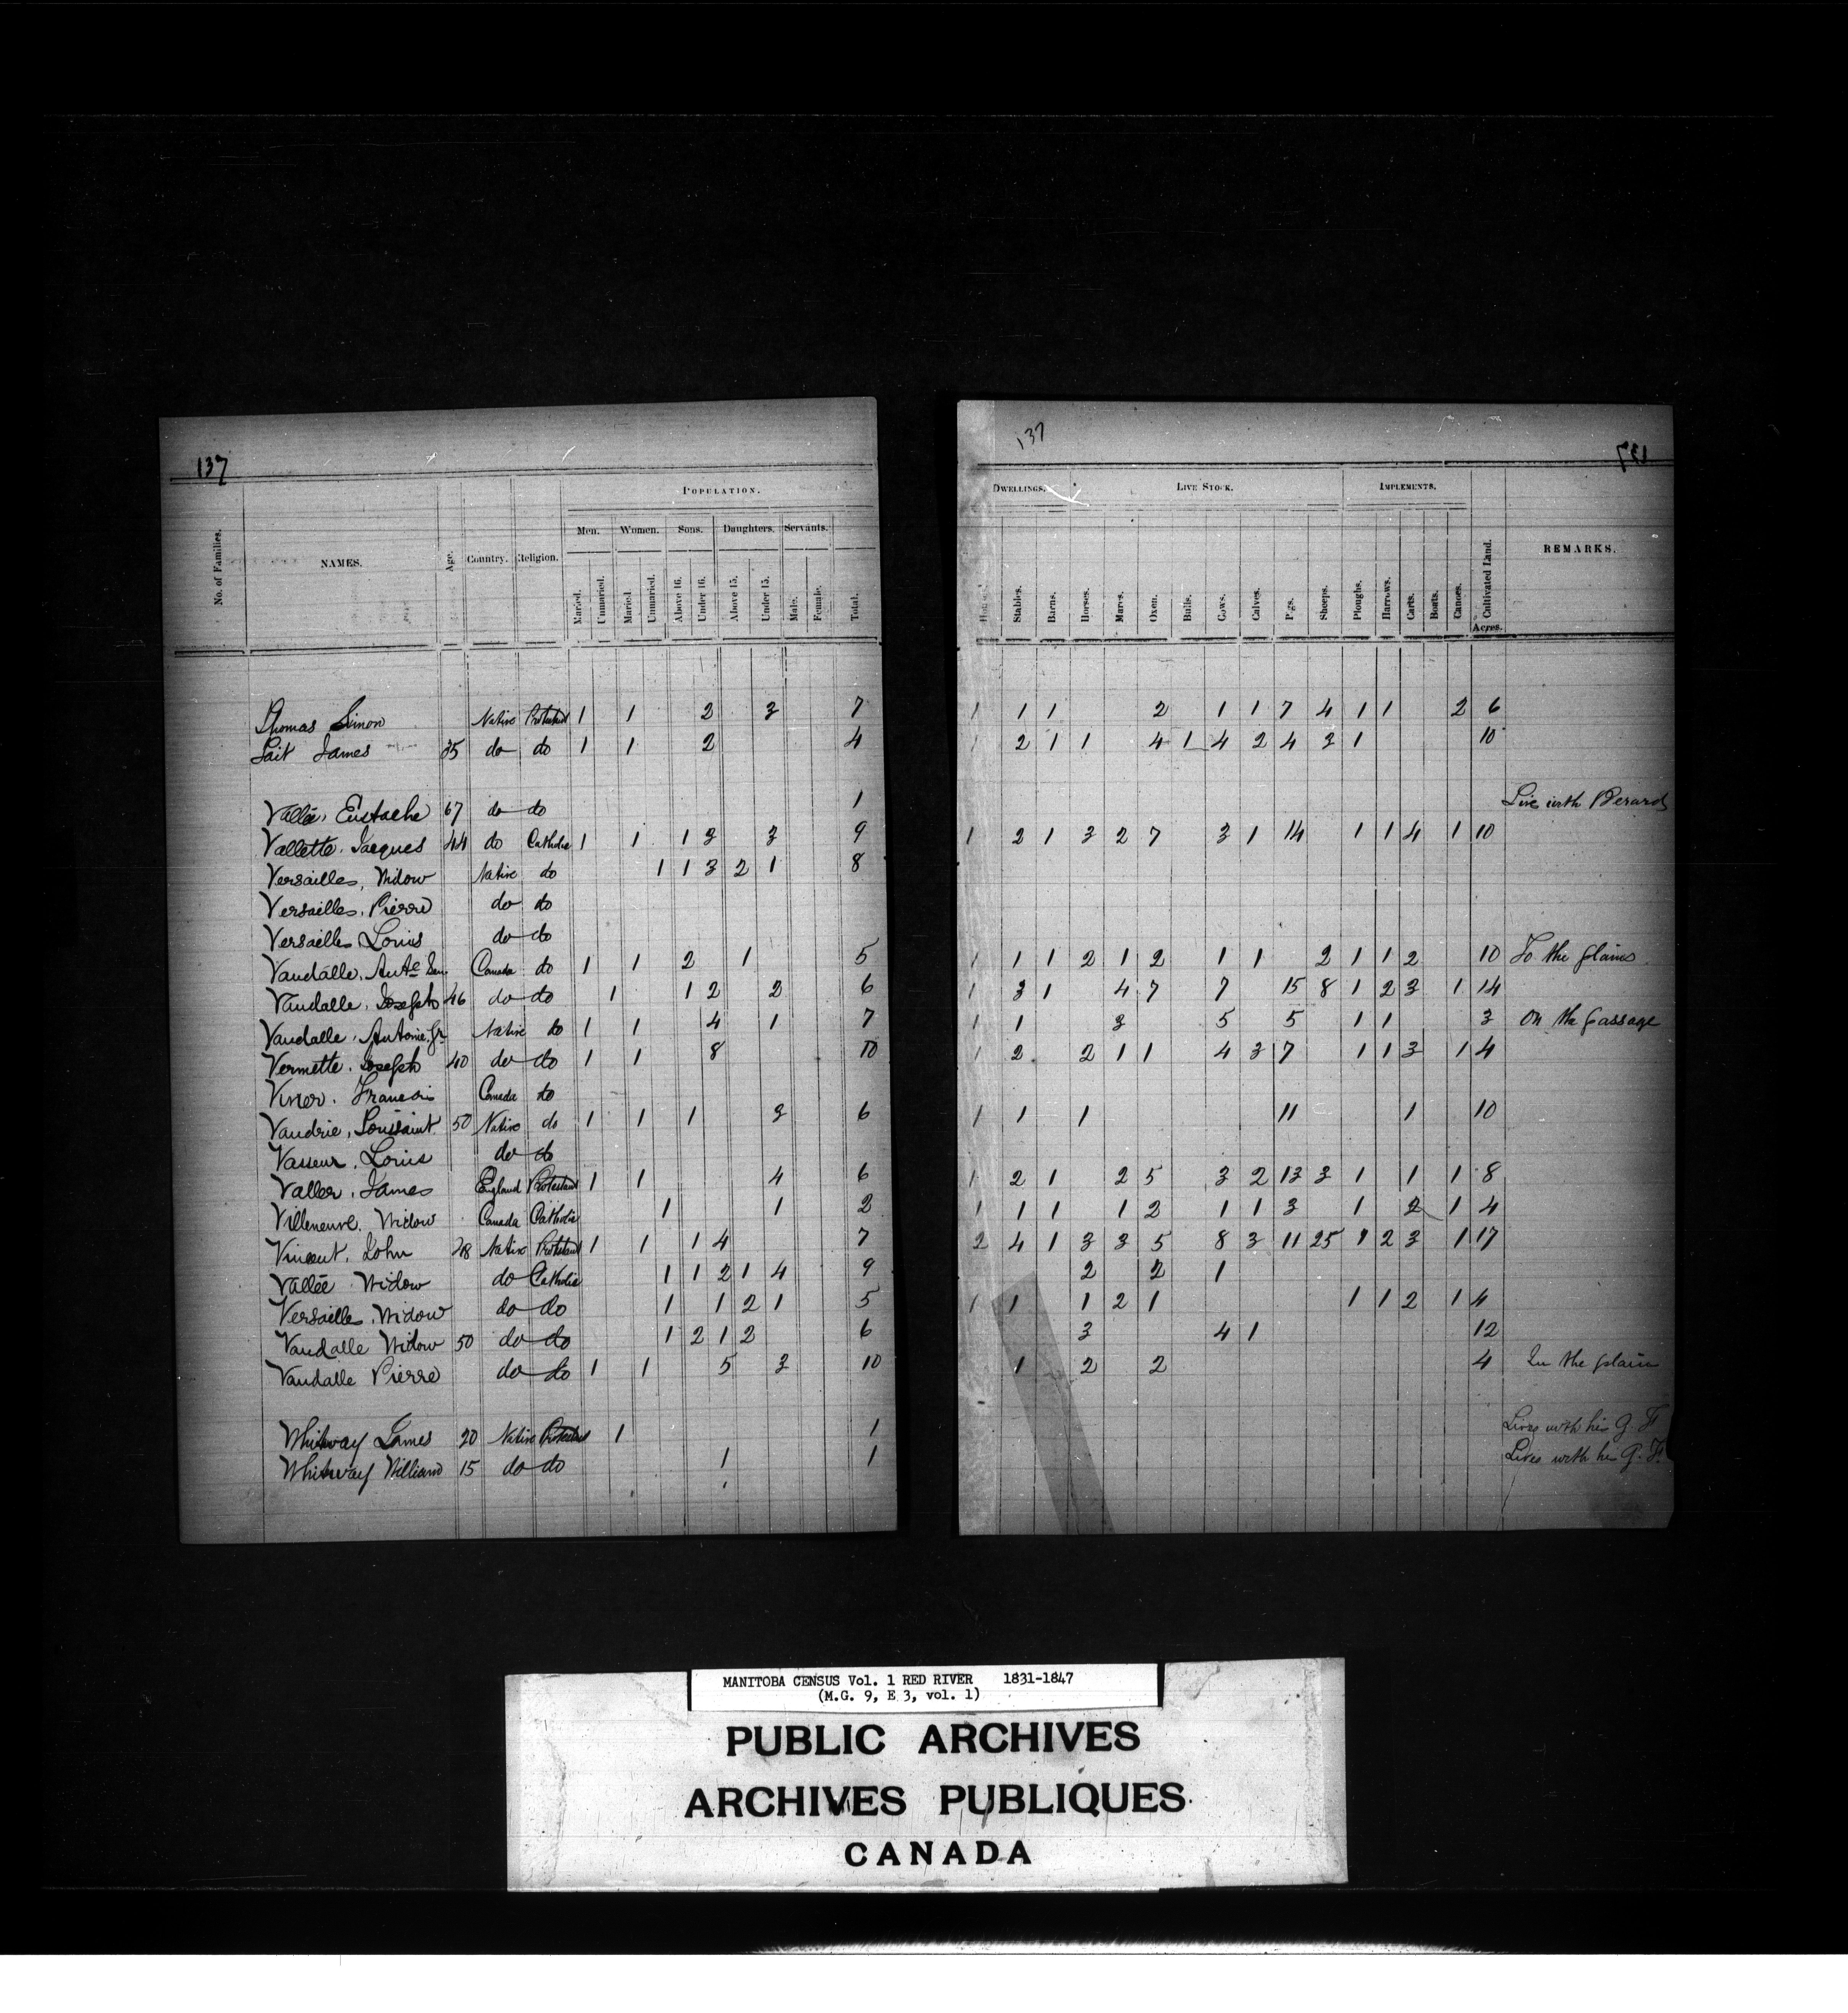 137
137
137
POPULATION.
DWELLINGS. LIVE STOCK. IMPLEMENTS.
No. of Families. NAMES. Age. Country. Religion. Men. Women. Sons. Daughters. Servants. REMARKS.
Maried. Unmaried. Maried. Unmaried. Above 16. Under 16. Above 15. Under 15. Male. Female. Total. Stables. Barns. Horses. Mares. Oxen. Bulls. Cows. Calves. Pigs. Sheeps. Ploughs. Harrows. Carts. Boats. Canoes. Cultivated Land. Acres.
Thomas Simon Native Protestant 1 1 2 3 7 1 1 1 2 1 1 7 4 1 1 2 6
Tait James 35 do do 1 1 2 4 1 2 1 1 4 1 4 2 4 3 1 10
Vallée, Eustache 67 do do 1 Live with Berard
Vallette, Jacques 44 do Catholic 1 1 1 3 3 9 1 2 1 3 2 7 3 1 14 1 1 4 1 10
Versailles, Widow Native do 1 1 3 2 1 8
Versailles, Pierre do do
Versailles Louis do do
Vandalle, Ante Sen. Canada do 1 1 2 1 5 1 1 1 2 1 2 1 1 2 1 1 2 10 To the plains
Vandalle, Joseph 46 do do 1 1 2 2 6 1 3 1 4 7 7 15 8 1 2 3 1 14
Vandalle, Antoine Jr Native do 1 1 4 1 7 1 1 3 5 5 1 1 3 On the passage
Vermette, Joseph 40 do do 1 1 8 10 1 2 2 1 1 4 3 7 1 1 3 1 4
Francois Canada do
Vaudrie, Toussaint 50 Native do 1 1 1 3 6 1 1 1 11 1 10
Vasseur, Louis do do
Valler, James England Protestant 1 1 4 6 1 2 1 2 5 3 2 13 3 1 1 1 8
Villeneuve, Widow Canada Catholic 1 1 2 1 1 1 1 2 1 1 3 1 2 1 4
Vincent, John 48 Native Protestant 1 1 1 4 7 2 4 1 3 3 5 8 3 11 25 1 2 3 1 17
Vallée Widow do Catholic 1 1 2 1 4 9 2 2 1
Versailles, Widow do do 1 1 2 1 5 1 1 1 2 1 1 1 2 1 4
Vandalle Widow 50 do do 1 2 1 2 6 3 4 1 12
Vandalle Pierre do do 1 1 5 3 10 1 2 2 4 In the plain
Whitway James 20 Native Protestant 1 1 Lives with his G. F.
Whitway William 15 do do 1 1 Lives with his G. F.
MANITOBA CENSUS Vol. 1 RED RIVER 1831-1847
(M.G. 9, E 3, vol. 1)
PUBLIC ARCHIVES
ARCHIVES PUBLIQUES
CANADA